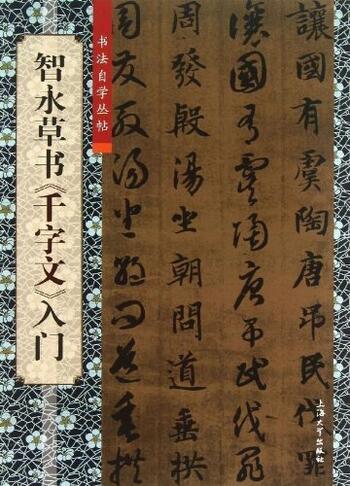 书法自学丛帖
智永草书《千字文》入门
讓國有虞陶唐吊民伐罪
讓國有虞陶唐吊民伐罪
周發殷湯坐朝問道垂拱
周發殷湯坐朝問道垂拱
上海大学出版社